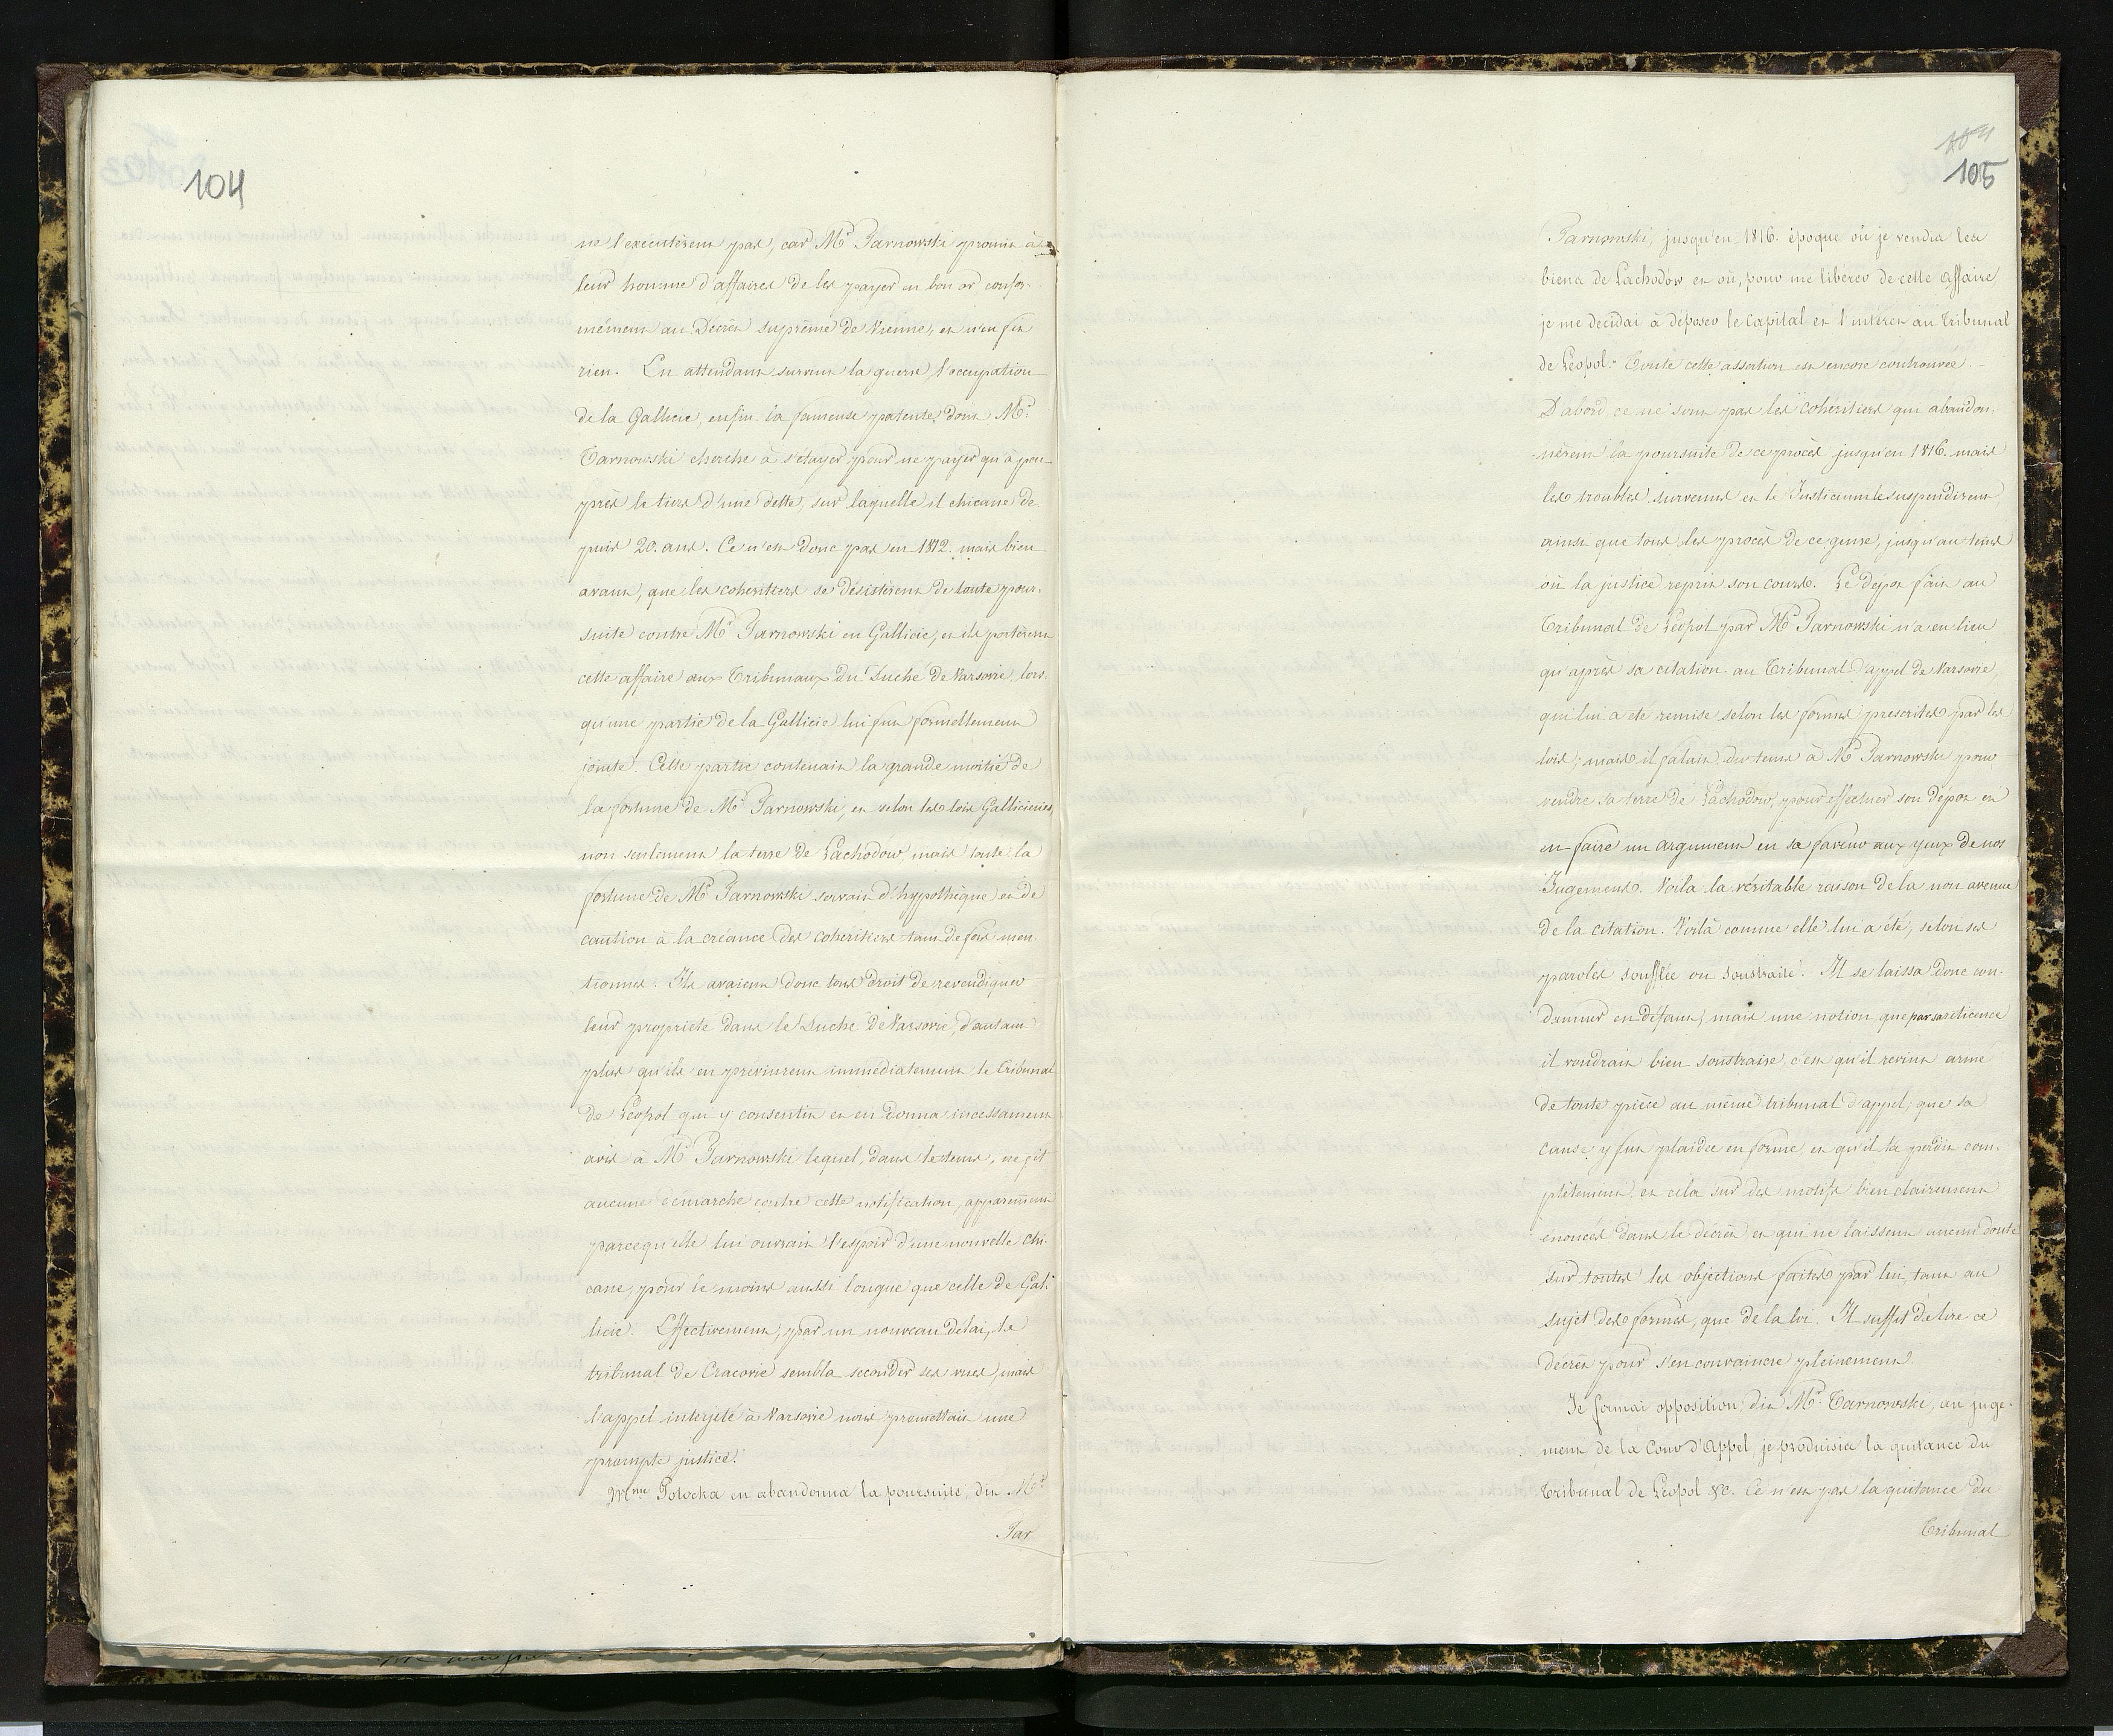 104
ne l'exécutèrent pas, car Mr Tarnowski promit à
leur homme d'affaires de les payer en bon or confor-
mément au Décrèt suprême de Vienne, et n'en fit
rien. En attendant survint la guerre l'occupation
de la Gallicie, enfin la fameuse patente, dont Mr
Tarnowski cherche à s'étayer pour ne payer qu'à peu
près le tiers d'une dette, sur laquelle il chicane de-
puis 20. ans. Ce n'est donc pas en 1812. mais bien
avant, que les coheritiers se désistèrent de toute pour-
suite contre Mr Tarnowski en Gallicie, et ils portèrent
cette affaire aux Tribunaux du Duché de Varsovie, lors-
qu'une partie de la Gallicie lui fut formellement
jointe. Cette partie contenait la grande moitié de
la fortune de Mr Tarnowski, et selon les lois Galliciennes,
non seulement la terre de Lachodów, mais toute la
fortune de Mr Tarnowski servait d'hypothèque et de
caution à la créance des coheritiers tant de fois men-
tionnés. Ils avaient donc tout droit de revendiquer
leur propriété dans le Duché de Varsovie, d'autant
plus qu'ils en prévinrent immédiatement le Tribunal
de Léopol qui y consentit et en donna incessament
avis à Mr Tarnowski lequel, dans le tems, ne fit
aucune démarche contre cette notification, apparemment
parcequ'elle lui ouvrait l'espoir d'une nouvelle chi-
cane, pour le moins aussi longue que celle de Gal-
licie. Effectivement, par un nouveau délai, le
tribunal de Cracovie sembla seconder ses vues, mais
l'appel interjeté à Varsovie nous promettait une
prompte justice.
Mme Potocka en abandonna la poursuite, dit Mr
Tar
104
105
Tarnowski, jusqu'en 1816. époque où je vendis les
biens de Lachodów et où, pour me libérer de cette affaire,
je me decidai à déposer le Capital et l'intérêt au Tribunal
de Léopol. Toute cette assertion est encore controuvée.
D'abord ce ne sont pas les coheritiers qui abandon-
nèrent la poursuite de ce procès jusqu'en 1816. mais
les troubles survenus et le Justicium le suspendirent
ainsi que tous les procès de ce genre, jusqu'au tems
où la justice reprit son cours. Le depot fait au
Tribunal de Léopol par Mr Tarnowski n'a eu lieu
qu'après sa citation au Tribunal d'appel de Varsovie,
qui lui a été remise selon les formes prescrites par les
lois; mais il falait du tems à Mr Tarnowski pour
vendre sa terre de Lachodow, pour effectuer son dépot et
en faire un argument en sa faveur aux yeux de nos
Jugemens. Voila la véritable raison de la non avenue
de la citation. Voilà comme elle lui a été, selon ses
paroles soufflée ou soustraite. Il se laissa donc con-
damner en défaut; mais une notion que par sa réticence
il voudrait bien soustraire, c'est qu'il revint armé
de toute pièce au même tribunal d'appel; que sa
cause y fut plaidée en forme, et qu'il la perdit com-
plètement, et cela sur des motifs bien clairement
enoncés dans le décrèt et qui ne laissent aucun doute
sur toutes les objections faites par lui, tant au
sujet des formes, que de la loi. Il suffit de lire ce
décrèt pour s'en convaincre pleinement.
Je formai opposition, dit Mr Tarnowski, au juge-
ment de la Cour d'Appel, je produisis la quitance du
Tribunal de Léopol &c. Ce n'est pas la quitance du
Tribunal